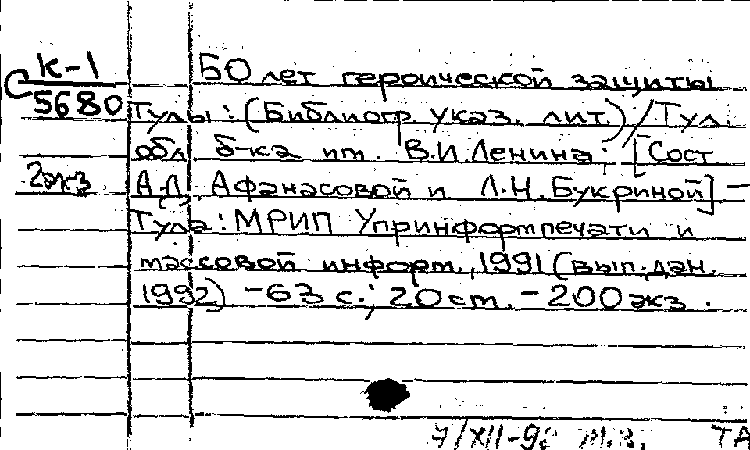 К-1
С 5680
50 лет героической защиты
Тулы: (Библиогр. указ. лит.) / Тул.
обл б-ка им. В.И.Ленина; [Сост
2экз А.Л. Афанасовой и Л.Н.Букриной] –
Тула: МРИП Упринформпечати и
массовой информ., 1991 (вып.дан.
1992) – 63 с.; 20 см. – 200 экз.
7/XII-92 ТА